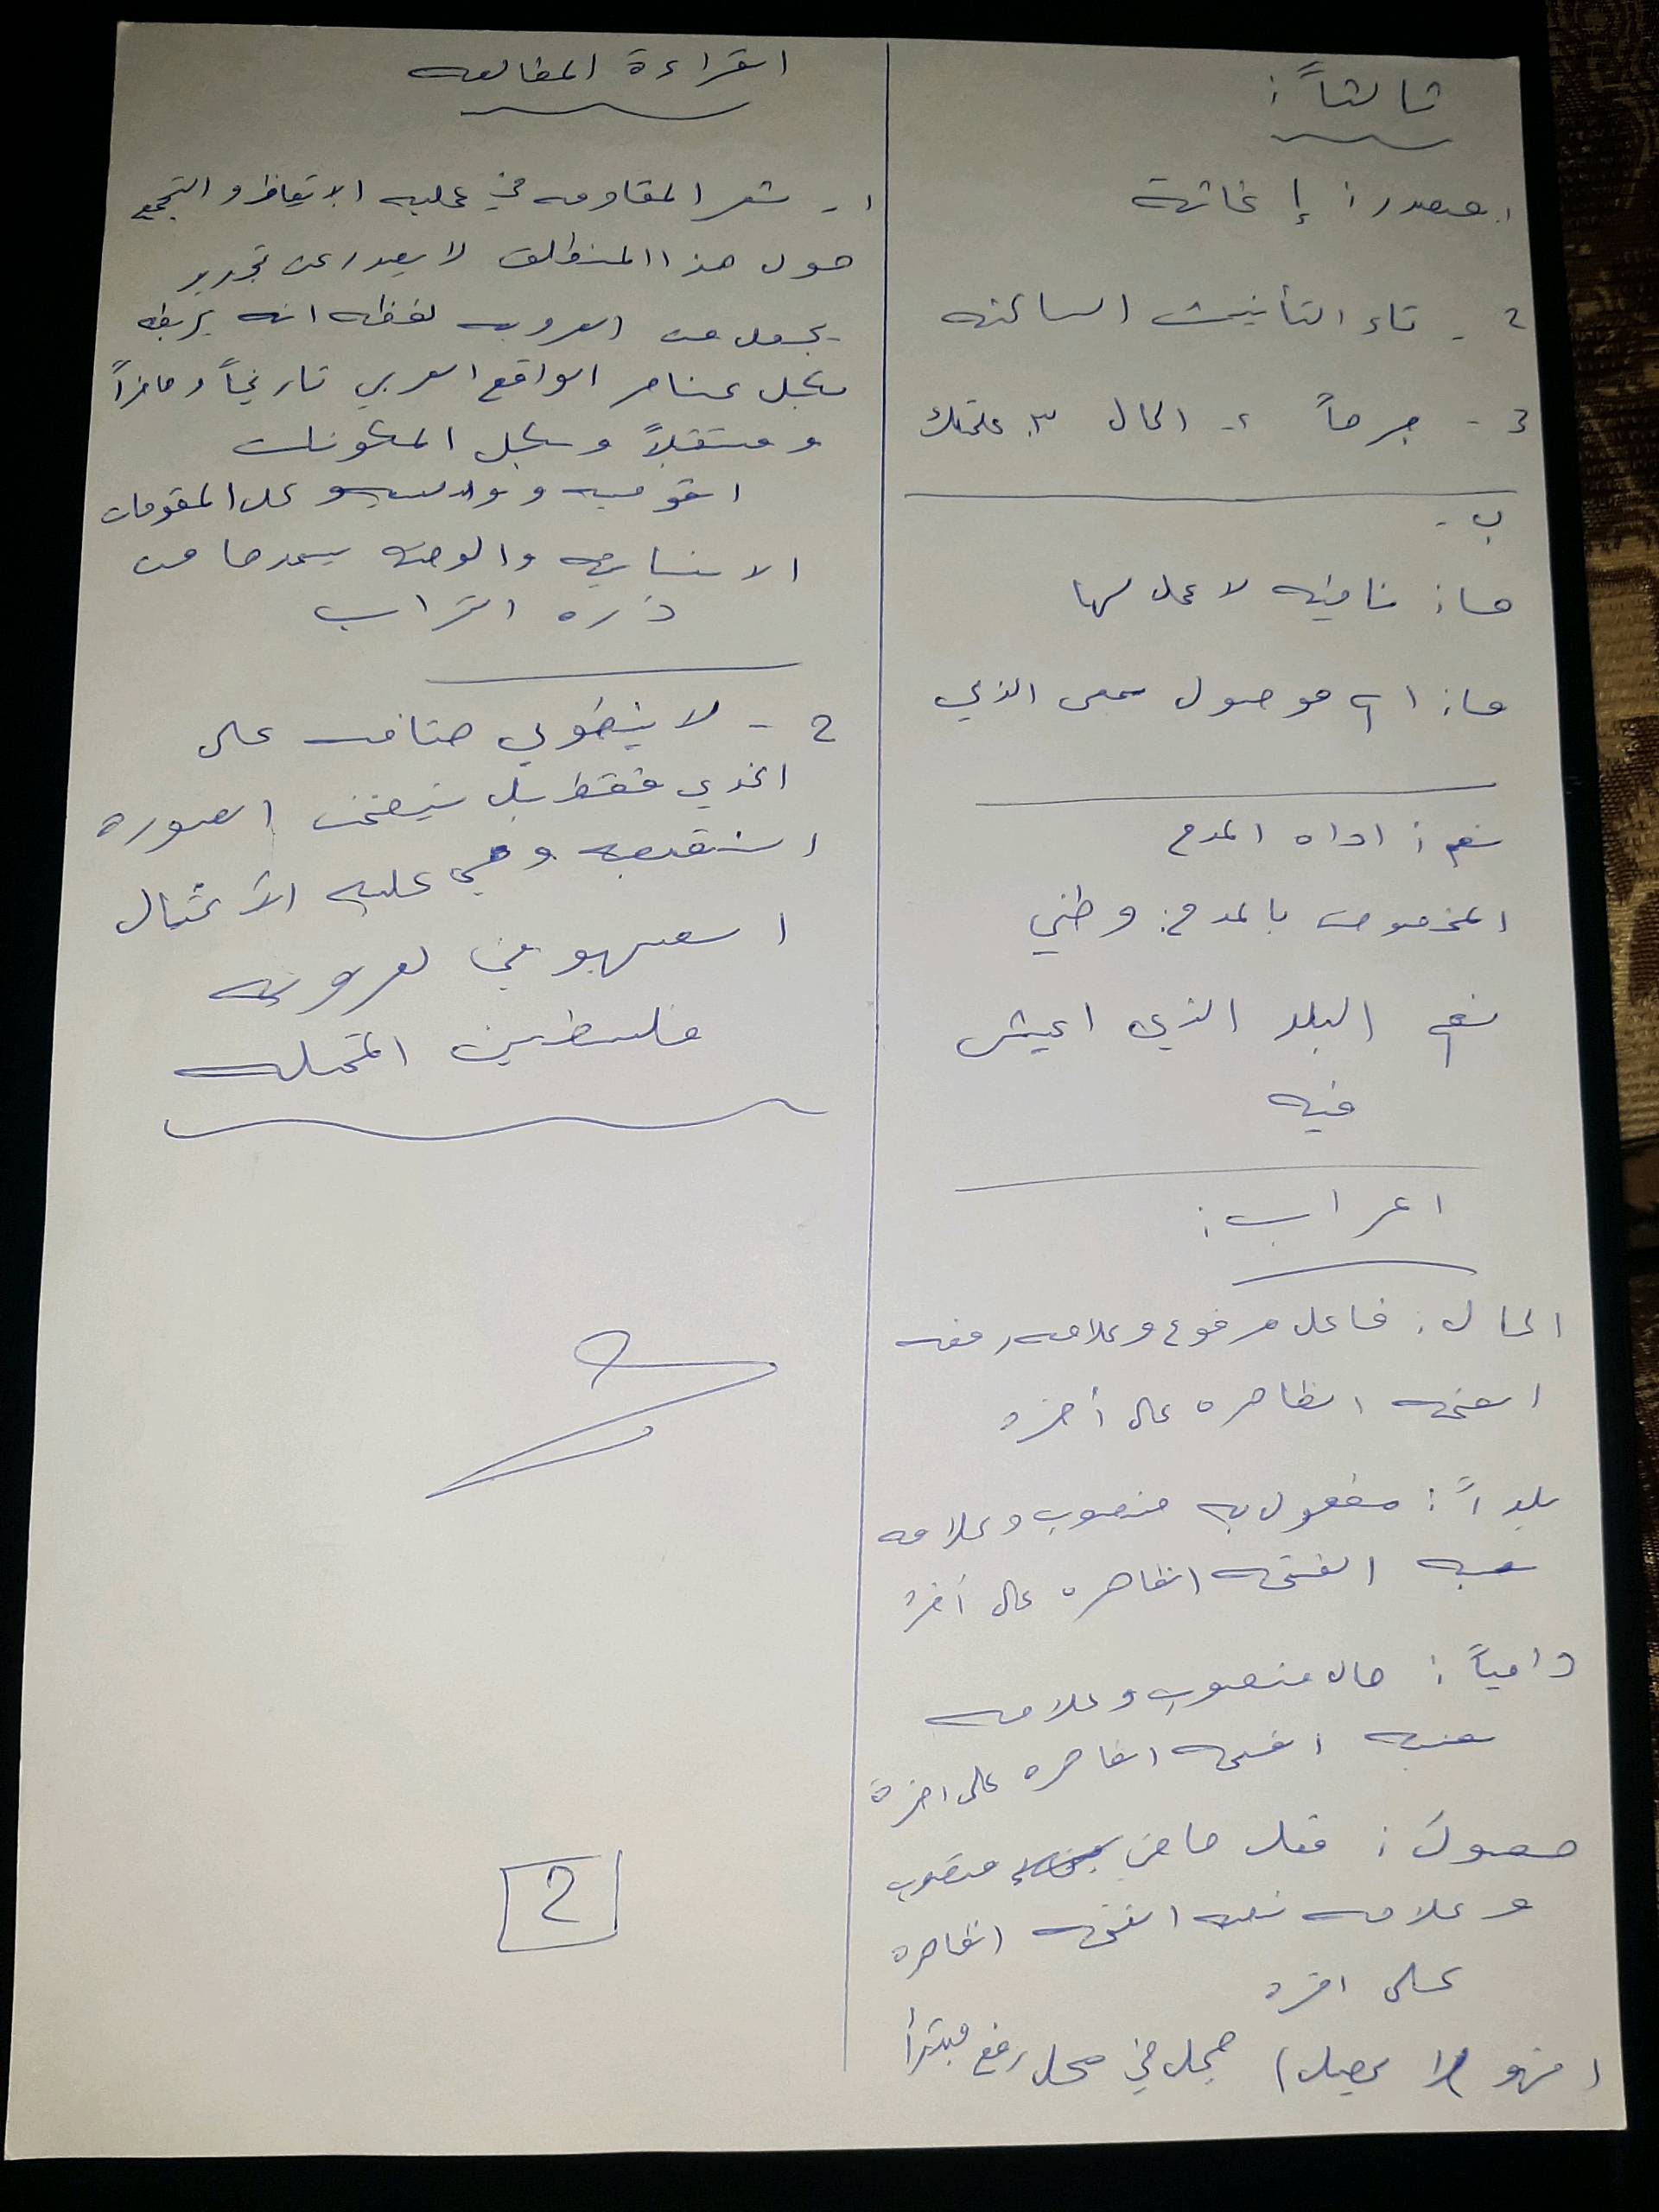 ثالثاً:
ا. مصدر: إغاثة
2 - تاء التأنيث الساكنه
3 - جرحاً 2- الحال 3. علمتك
ب -
ما: نافيه لا عمل لها
ما: اسم موصول بمعنى الذي
نعم: اداه المدح
المخصوص بالمدح: وطني
نعم البلد الذي اعيش
فيه
اعراب:
الحال: فاعل مرفوع وعلامه رفعه
الضمه الظاهره على أخره
بلداً: مفعول به منصوب وعلامه
نصبه الفتحه الظاهره على أخره
دامياً: حال منصوب وعلامه
نصبه الفتحه الظاهره على اخرة
فعل ماض منصوب
وعلامه نصبه الفتحه الظاهره
على اخره
في محل رفع مبتدأ
القراءة المطالعه
1- شعر المقاومه في عمليه الايقاظ والتجمع
حول هذا المنطلق لا يصدر عن تجريد
يجعل من العروبه لفظه انه يربطه
بكل عناصر الواقع العربي تاريخاً وحاضراً
ومستقبلاً وبكل المكونات
القوميه و كل المقومات
الانسانيه والوطنيه من
ذره التراب
2 - لا ينطوي على
فقط بل الصوره
النقيضه وهي عمليه الأغتيال
الصهيوني لعروبه
فلسطين المحتله
2